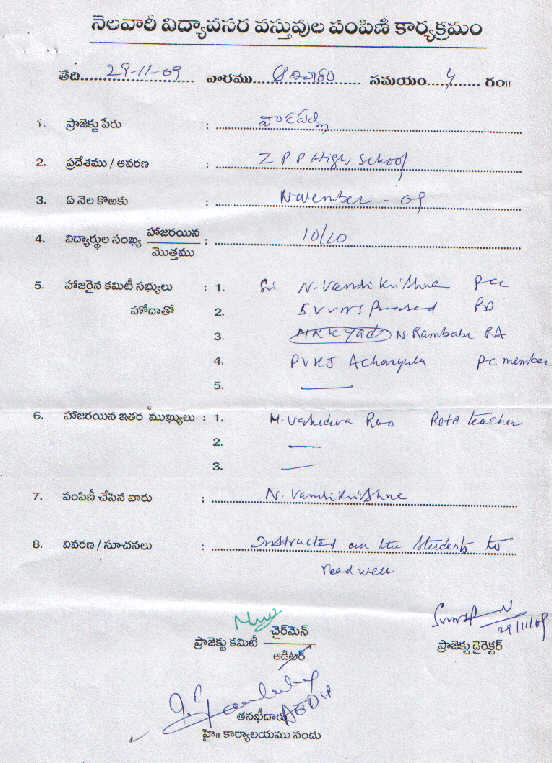 నెలవారీ విద్యావసర వస్తువుల పంపిణీ కార్యక్రమం
తేది 29-11-09 వారము సమయం 4 గం॥
1. ప్రాజెక్టు పేరు :
2. ప్రదేశము / ఆవరణ : Z P P High School
3. ఏ నెల కొఱకు : November - 09
4. విద్యార్థుల సంఖ్య హాజరయిన / మొత్తము : 10/10
5. హాజరైన కమిటీ సభ్యులు : 1. Sri N. Vamsi Krishna PCC
హోదాతో 2. S V V N S Prasad PD
3. N Rambabu PA
4. P V K J Acharyulu PC member
5. —
6. హాజరయిన ఇతర ముఖ్యులు : 1. M. Vasudeva Rao Retd teacher
2. —
3. —
7. పంపిణీ చేసిన వారు : N. Vamsi Krishna
8. వివరణ / సూచనలు : Instructed all the students to
read well
ప్రాజెక్టు కమిటీ చైర్‌మెన్ / ఆడిటర్
ప్రాజెక్టు డైరెక్టర్
29/11/09
తనిఖీదారు
హై॥ కార్యాలయము నందు